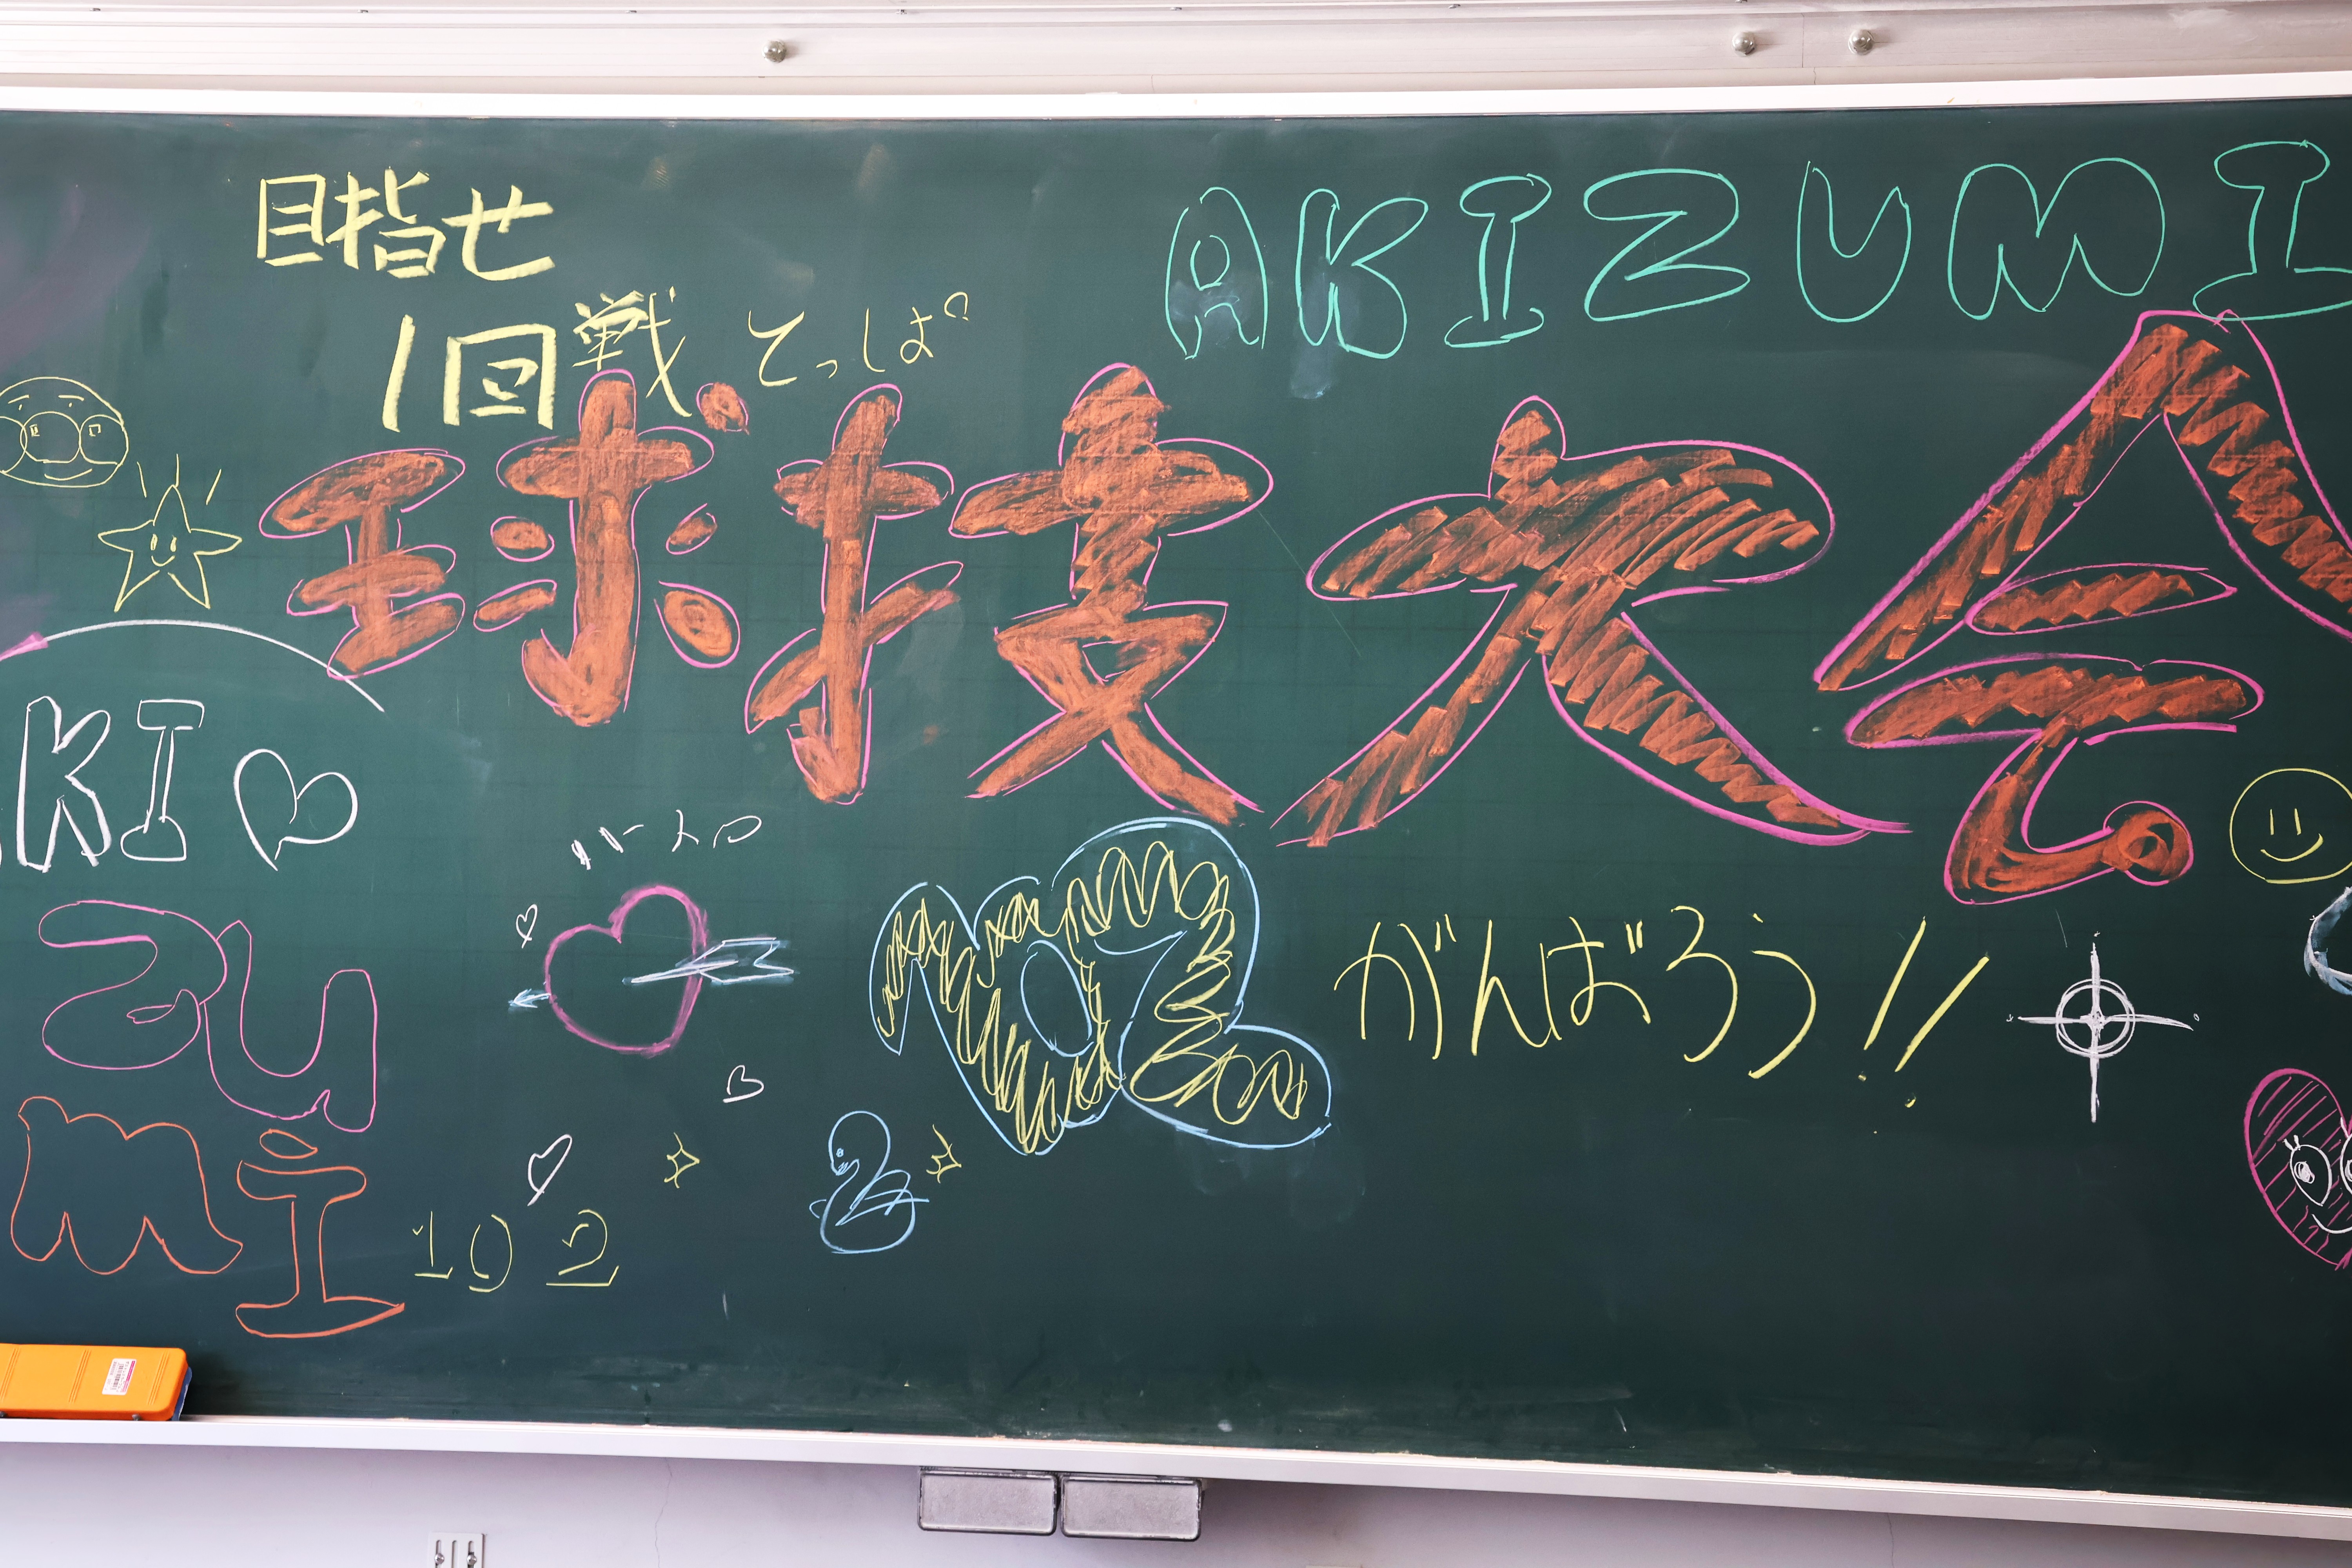 目指せ
1回戦 とっぱ
AKIZUMI
球技大会
KI
zu
mi
102
ハート
102
がんばろう!!